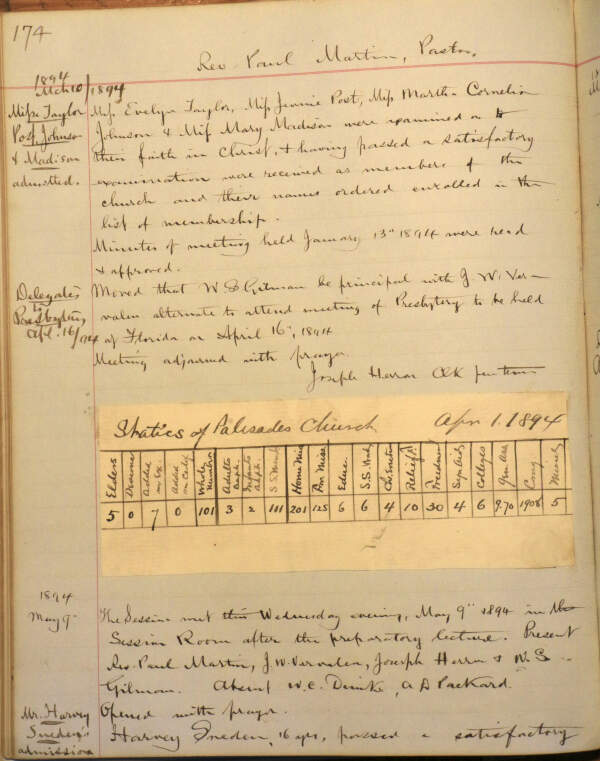 174
Rev. Paul Martin, Pastor.
1894
Mch 10/1894
Miss Taylor
Post, Johnson
& Madison
admitted.
Miss Evelyn Taylor, Miss Jennie Post, Miss Martha Cornelia
Johnson & Miss Mary Madison were examined as to
their faith in Christ, & having passed a satisfactory
examination were received as members of the
church and their names ordered enrolled in the
list of membership.
Minutes of meeting held January 13th 1894 were read
& approved.
Delegates
to
Presbytery
Apl. 16/1894
Moved that W S Gilman be principal with J. W. Ver-
valen alternate to attend meeting of Presbytery to be held
at Florida on April 16th, 1894
Meeting adjourned with prayer.
Joseph Herron Clk pro tem
Statics of Palisades Church Apr 1. 1894
Elders Deacons Added on Ex. Added on Cert. Whole Number Adults Bapt. Infants Bapt. S.S. Home Miss For Miss Educ. S.S. Work Ch. Erection Relief Freedmen Sup Aid Colleges Gen Ass Cong Miscel
5 0 7 0 101 3 2 111 201 125 6 6 4 10 30 4 6 9.70 1908 5
1894
May 9
The Session met this Wednesday evening, May 9th 1894 in the
Session Room after the preparatory lecture. Present
Rev. Paul Martin, J. W. Vervalen, Joseph Herron & W. S.
Gilman. Absent W. C. A D Packard.
Opened with prayer.
Mr. Harvey
Sneden's
admission
Harvey Sneden, 16 yrs, passed a satisfactory